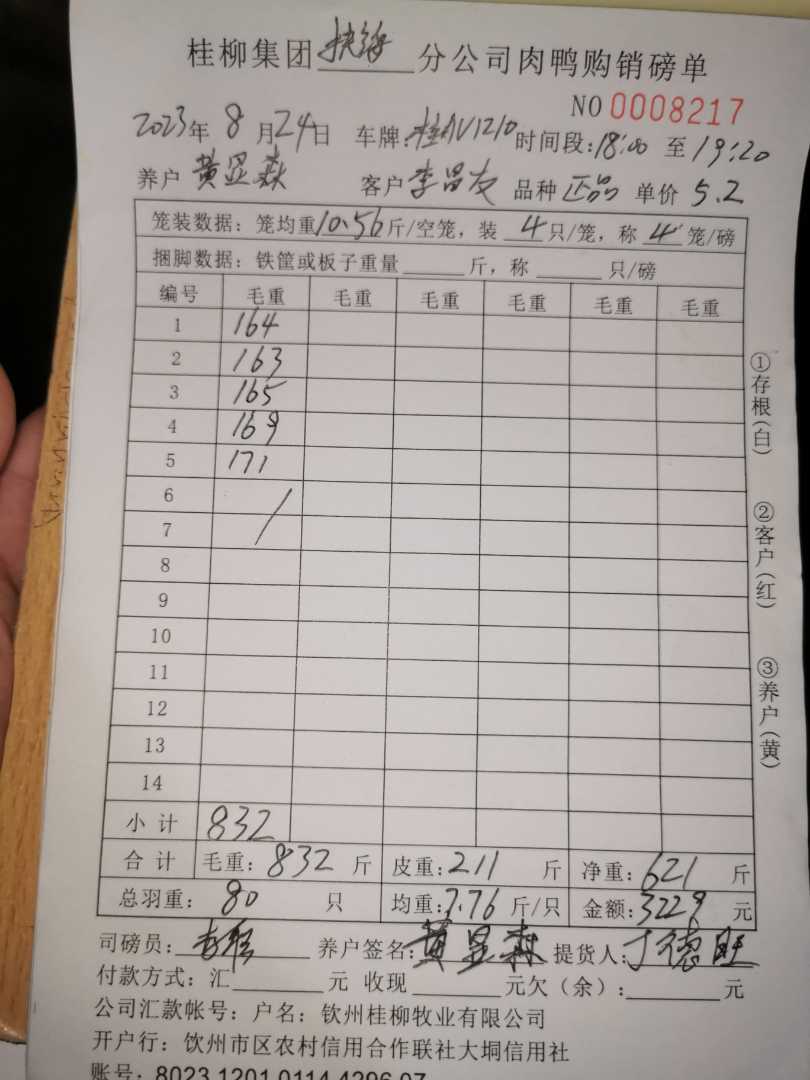 桂柳集团扶绥分公司肉鸭购销磅单
NO 0008217
2023年 8月24日 车牌:桂AV1210 时间段:18:00 至 19:20
养户 黄显森 客户 李昌友 品种 正品 单价 5.2
笼装数据：笼均重10.56斤/空笼，装 4 只/笼，称 4 笼/磅
捆脚数据：铁筐或板子重量 斤，称 只/磅
编号 毛重 毛重 毛重 毛重 毛重 毛重
1 164
2 163
3 165
4 169
5 171
6
7
8
9
10
11
12
13
14
小计 832
合计 毛重：832 斤 皮重：211 斤 净重：621 斤
总羽重：80 只 均重：7.76 斤/只 金额：3229 元
司磅员： 养户签名：黄显森 提货人：丁德旺
付款方式：汇 元 收现 元欠（余）： 元
公司汇款帐号：户名：钦州桂柳牧业有限公司
开户行：钦州市区农村信用合作联社大垌信用社
账号：8023 1201 0114 4296 07
①存根(白)
②客户(红)
③养户(黄)